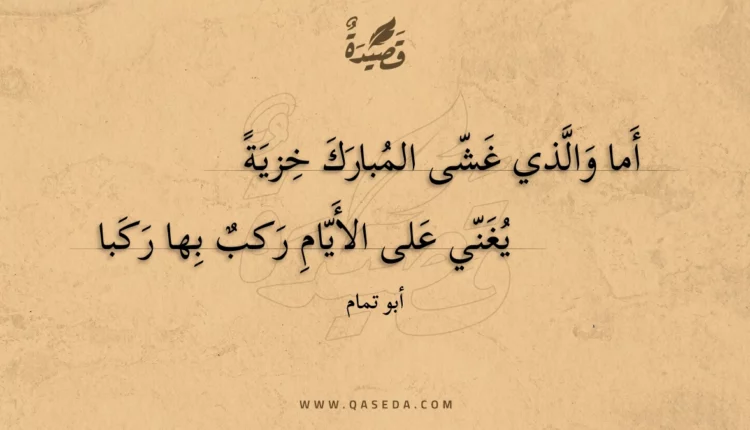 قَصِيدَةٌ
أَما وَالَّذي غَشّى المُبارَكَ خِزيَةً
يُغَنّي عَلى الأَيّامِ رَكبٌ بِها رَكَبا
أبو تمام
WWW.QASEDA.COM